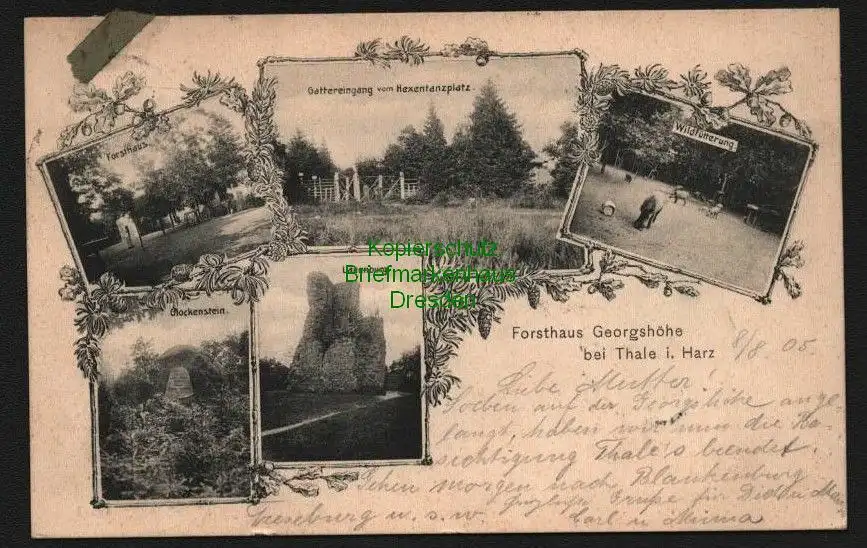 Gattereingang vom Hexentanzplatz.
Forsthaus.
Wildfütterung
Kopierschutz
Briefmarkenhaus
Dresden
Glockenstein.
Forsthaus Georgshöhe
bei Thale i. Harz
8/8 05
Liebe Mutter!
Soeben auf der Georgshöhe ange-
langt, haben wir nun die Be-
sichtigung Thale's beendet.
Gehen morgen nach Blankenburg
u. s. w. Grüße für Dich
Carl u Minna